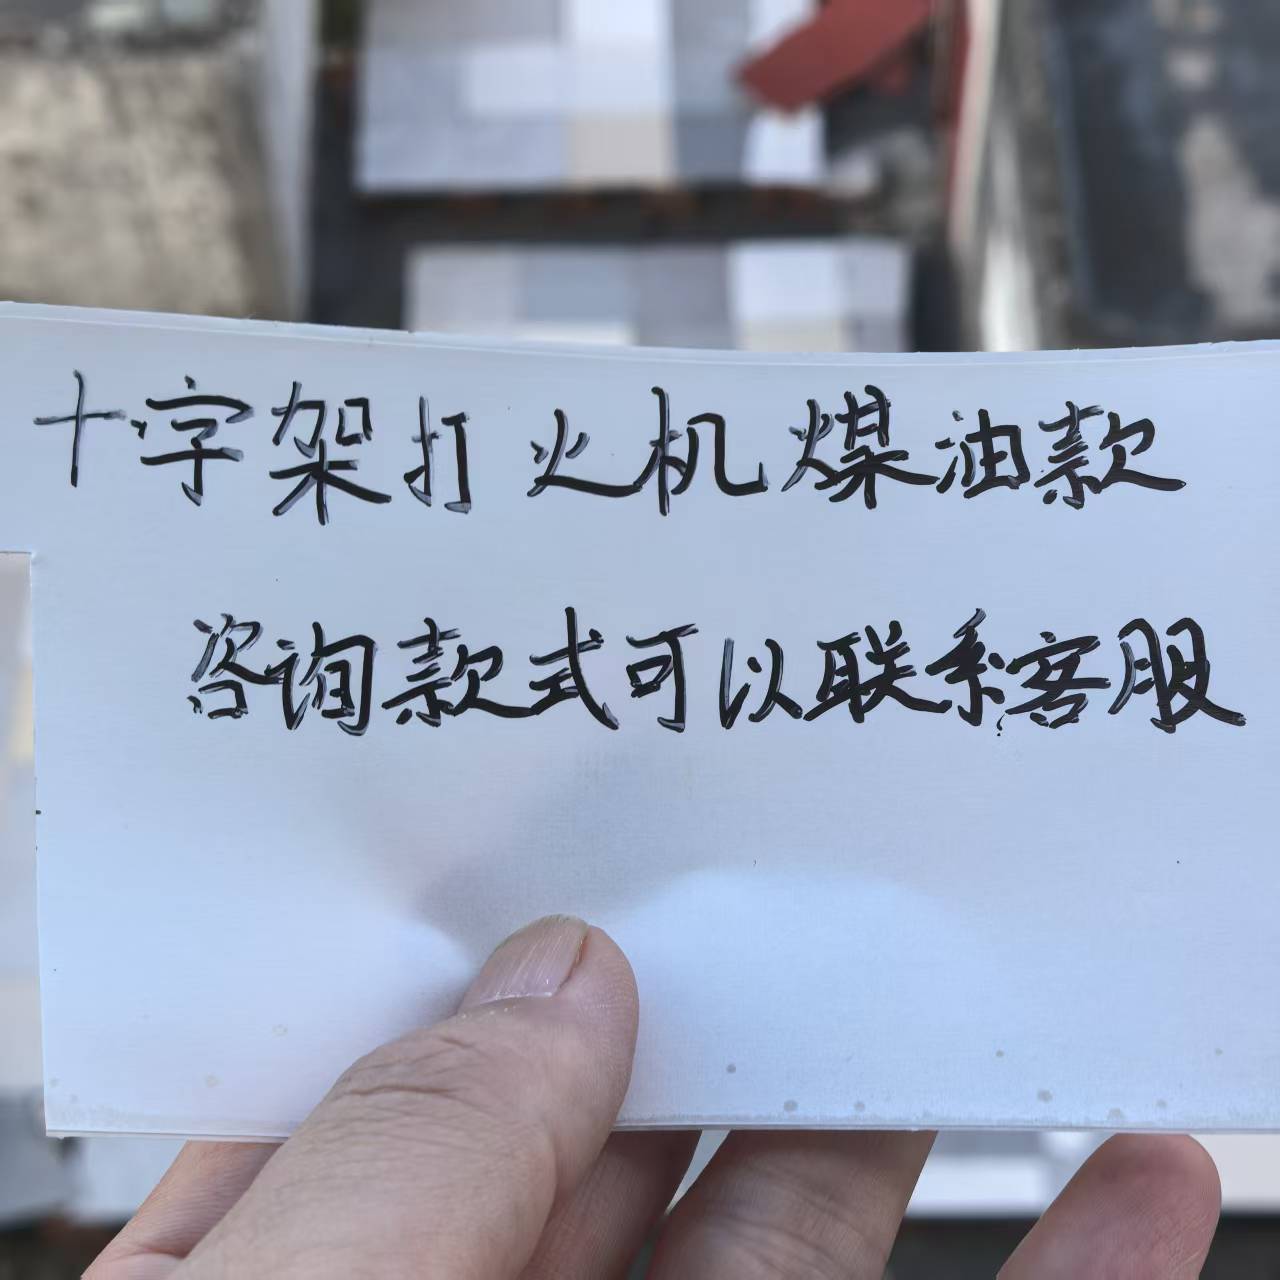 十字架打火机煤油款
咨询款式可以联系客服